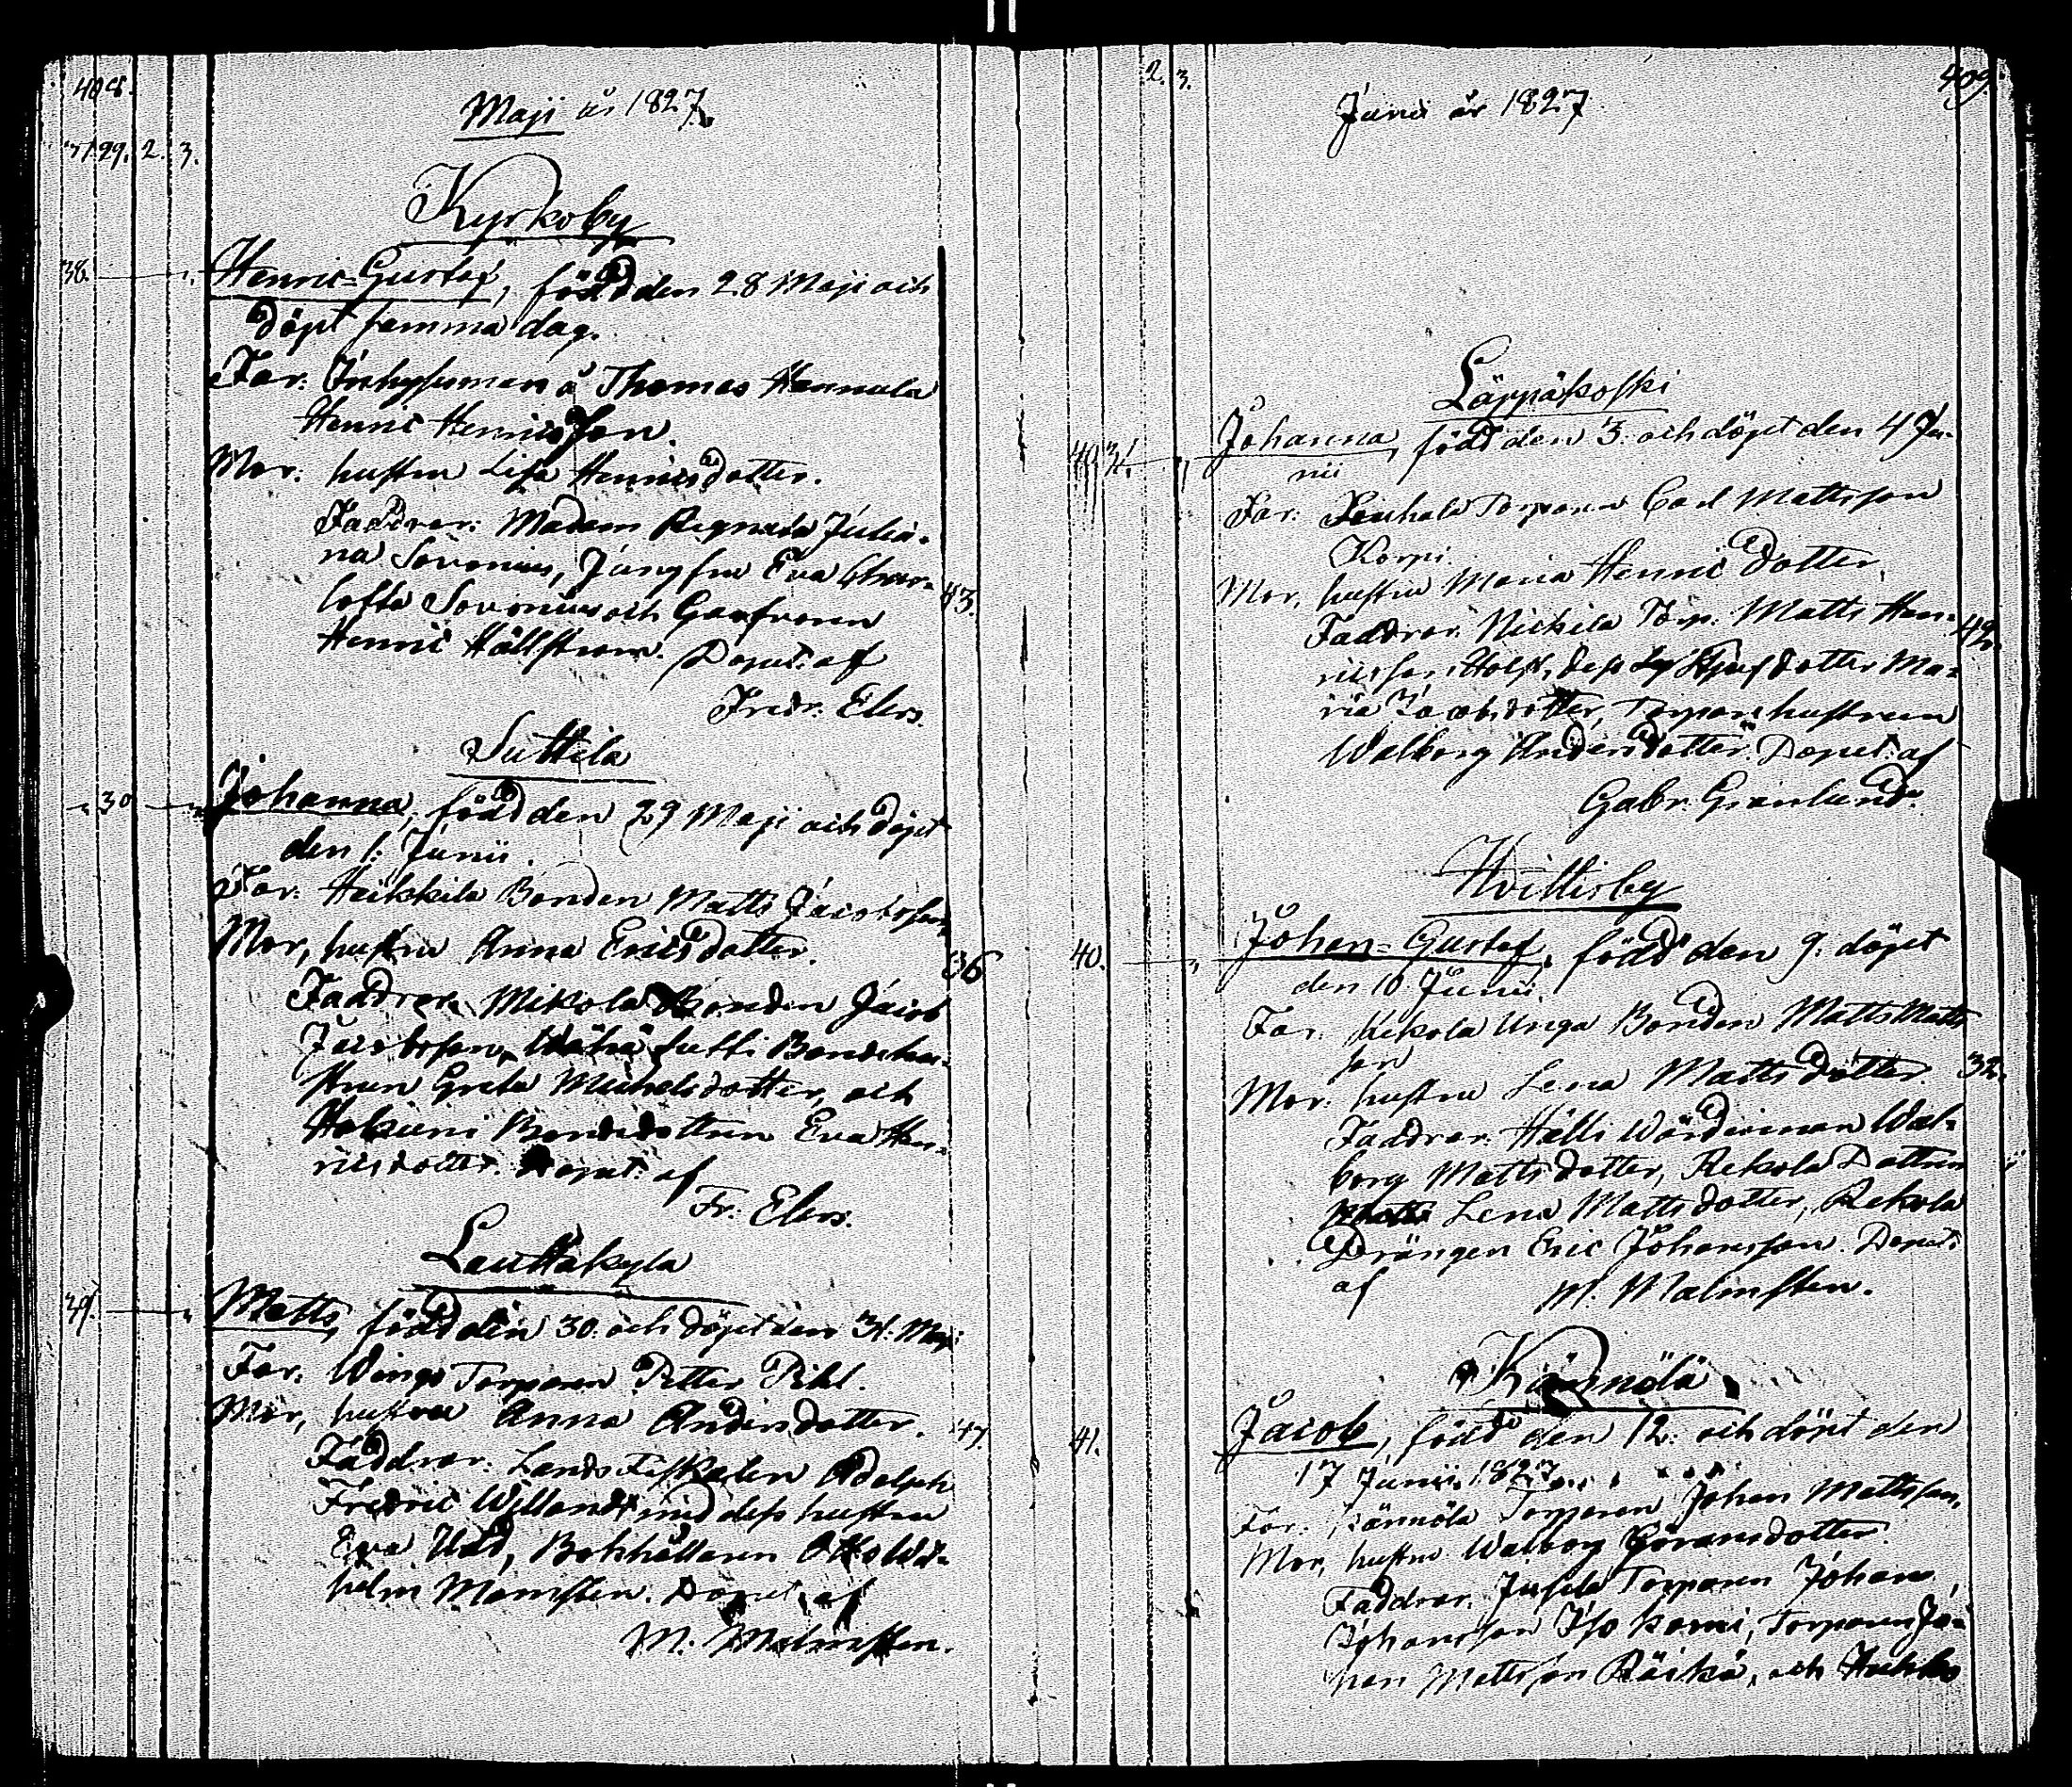 408.
Maji år 1827.
37. 29. 2. 3.
Kyrkoby
38. Henric=Gustaf, född den 28 Maji och
döpt samma dag.
Far: Inhysesman å Thomas Hannula
Henric Henricsson.
Mor: hustru Lisa Henricsdotter.
Faddrar: Madam Regnela Julia-
na Sovonius, Jungfru Eva Char-
lotta Sovonius och Garfvaren 43.
Henric Hällström. Döpt af
Fredr: Elers.
Suttila
30 Johanna, född den 29 Maji och döpt
den 1. Junii.
Far: Heikkila Bonden Matts Jacobsson,
Mor, hustru Anna Ericsdotter. 36
Faddrar: Mikola Bonden Jacob
Jacobsson, Wähä Sutti Bondehu-
strun Greta Michelsdotter, och
Hakuni Bondedottren Eva Hen-
ricsdotter. Döpt af
Fr: Elers.
Lauttakyla
39. Matts, född den 30. och döpt den 31. Maji
Far: Wings Torparen Petter Pihl.
Mor, hustru Anna Andersdotter. 47.
Faddrar: Lands Fiskalen Adolph
Fredric Willandt med dess hustru
Eva Udd, Bokhållaren Otto Wil-
helm Mamsten. Döpt af
M. Malmsten.
2. 3. 409.
Junii år 1827
Läppäkoski
31. Johanna, född den 3. och döpt den 4 Ju-
nii
Far: Jouhala Torparen Carl Mattsson
Korpi.
Mor, hustru Maria Henricsdotter,
Faddrar: Nickila Torp. Matts Hen- 42.
ricsson Holst, dess Styfdotter Ma-
ria Jacobsdotter, Torparehustrun
Walborg Andersdotter. Döpt af
Gabr. Grönlund.
Hvittisby
40. Johan=Gustaf, född den 9. döpt
den 10 Junii.
Far: Rekola Unga Bonden Matts Matts
son
Mor: hustru Lena Mattsdotter. 32.
Faddrar: Hälli Wärdinnan Wal-
borg Mattsdotter, Rekola Dottren
Lena Mattsdotter, Rekola
Drängen Eric Johansson. Döpt
af M. Malmsten.
Kännölä
41. Jacob, född den 12. och döpt den
17 Junii 1827.
Far: Kännölä Torparen Johan Mattsson,
Mor, hustru Walborg Göransdotter.
Faddrar: Jusela Torparen Johan
Johansson Iso komi, Torparen Jo-
han Mattsson Räikä, och